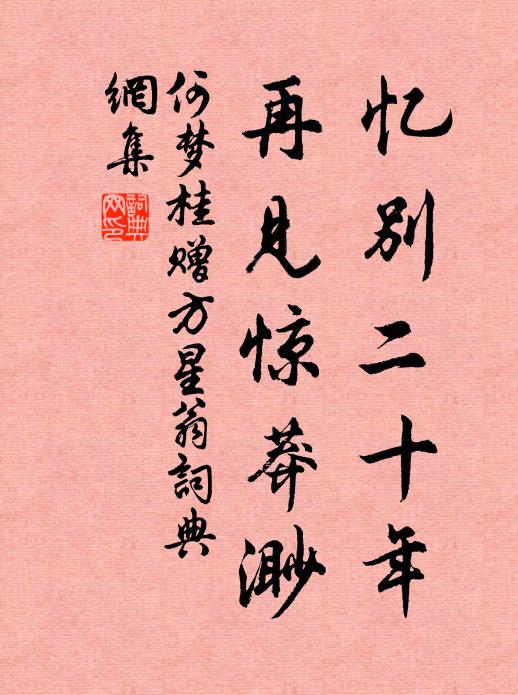 忆别二十年
再见惊莽渺
何梦桂赠方星翁詞典
網集
詞典网印